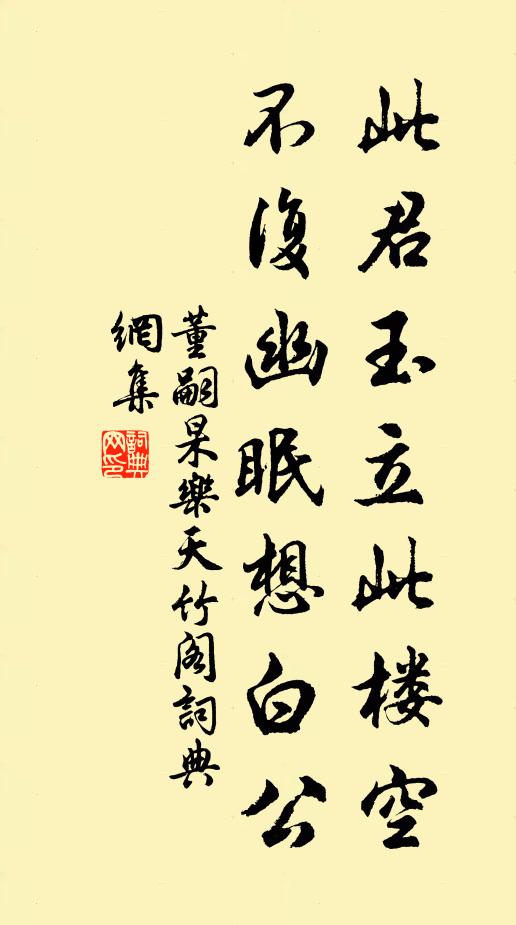 此君玉立此楼空
不復幽眠想白公
董嗣杲樂天竹阁詞典
網集
詞典
网印